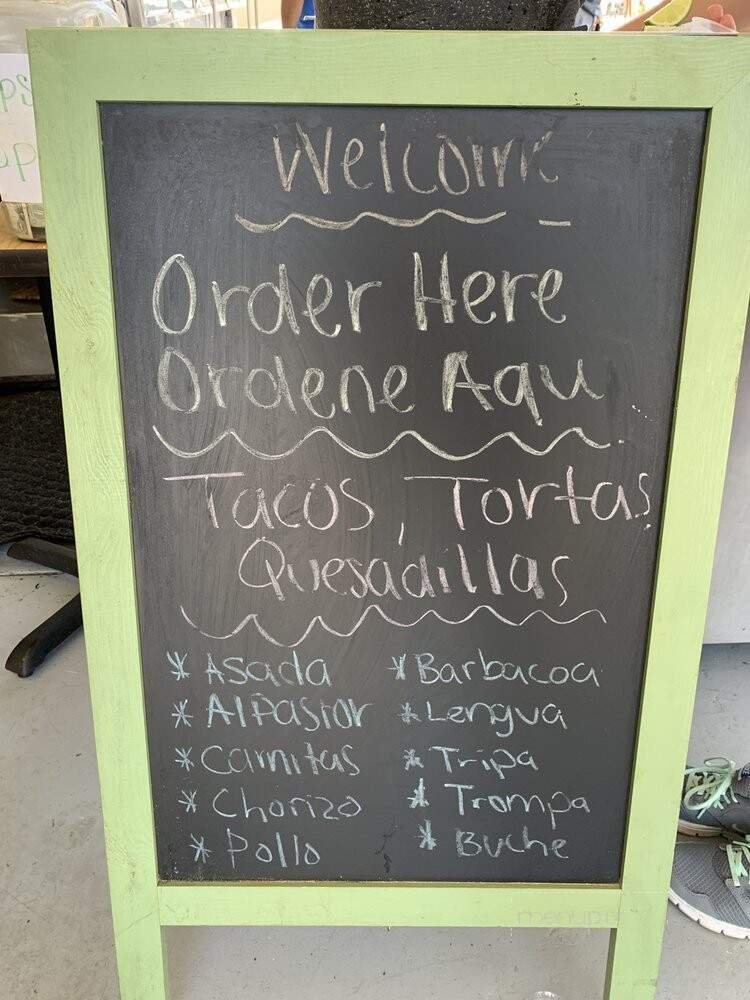 Welcome
Order Here
Ordene Aqu
Tacos, Tortas,
Quesadillas
* Asada
* Al Pastor
* Carnitas
* Chorizo
* Pollo
* Barbacoa
* Lengua
* Tripa
* Trompa
* Buche